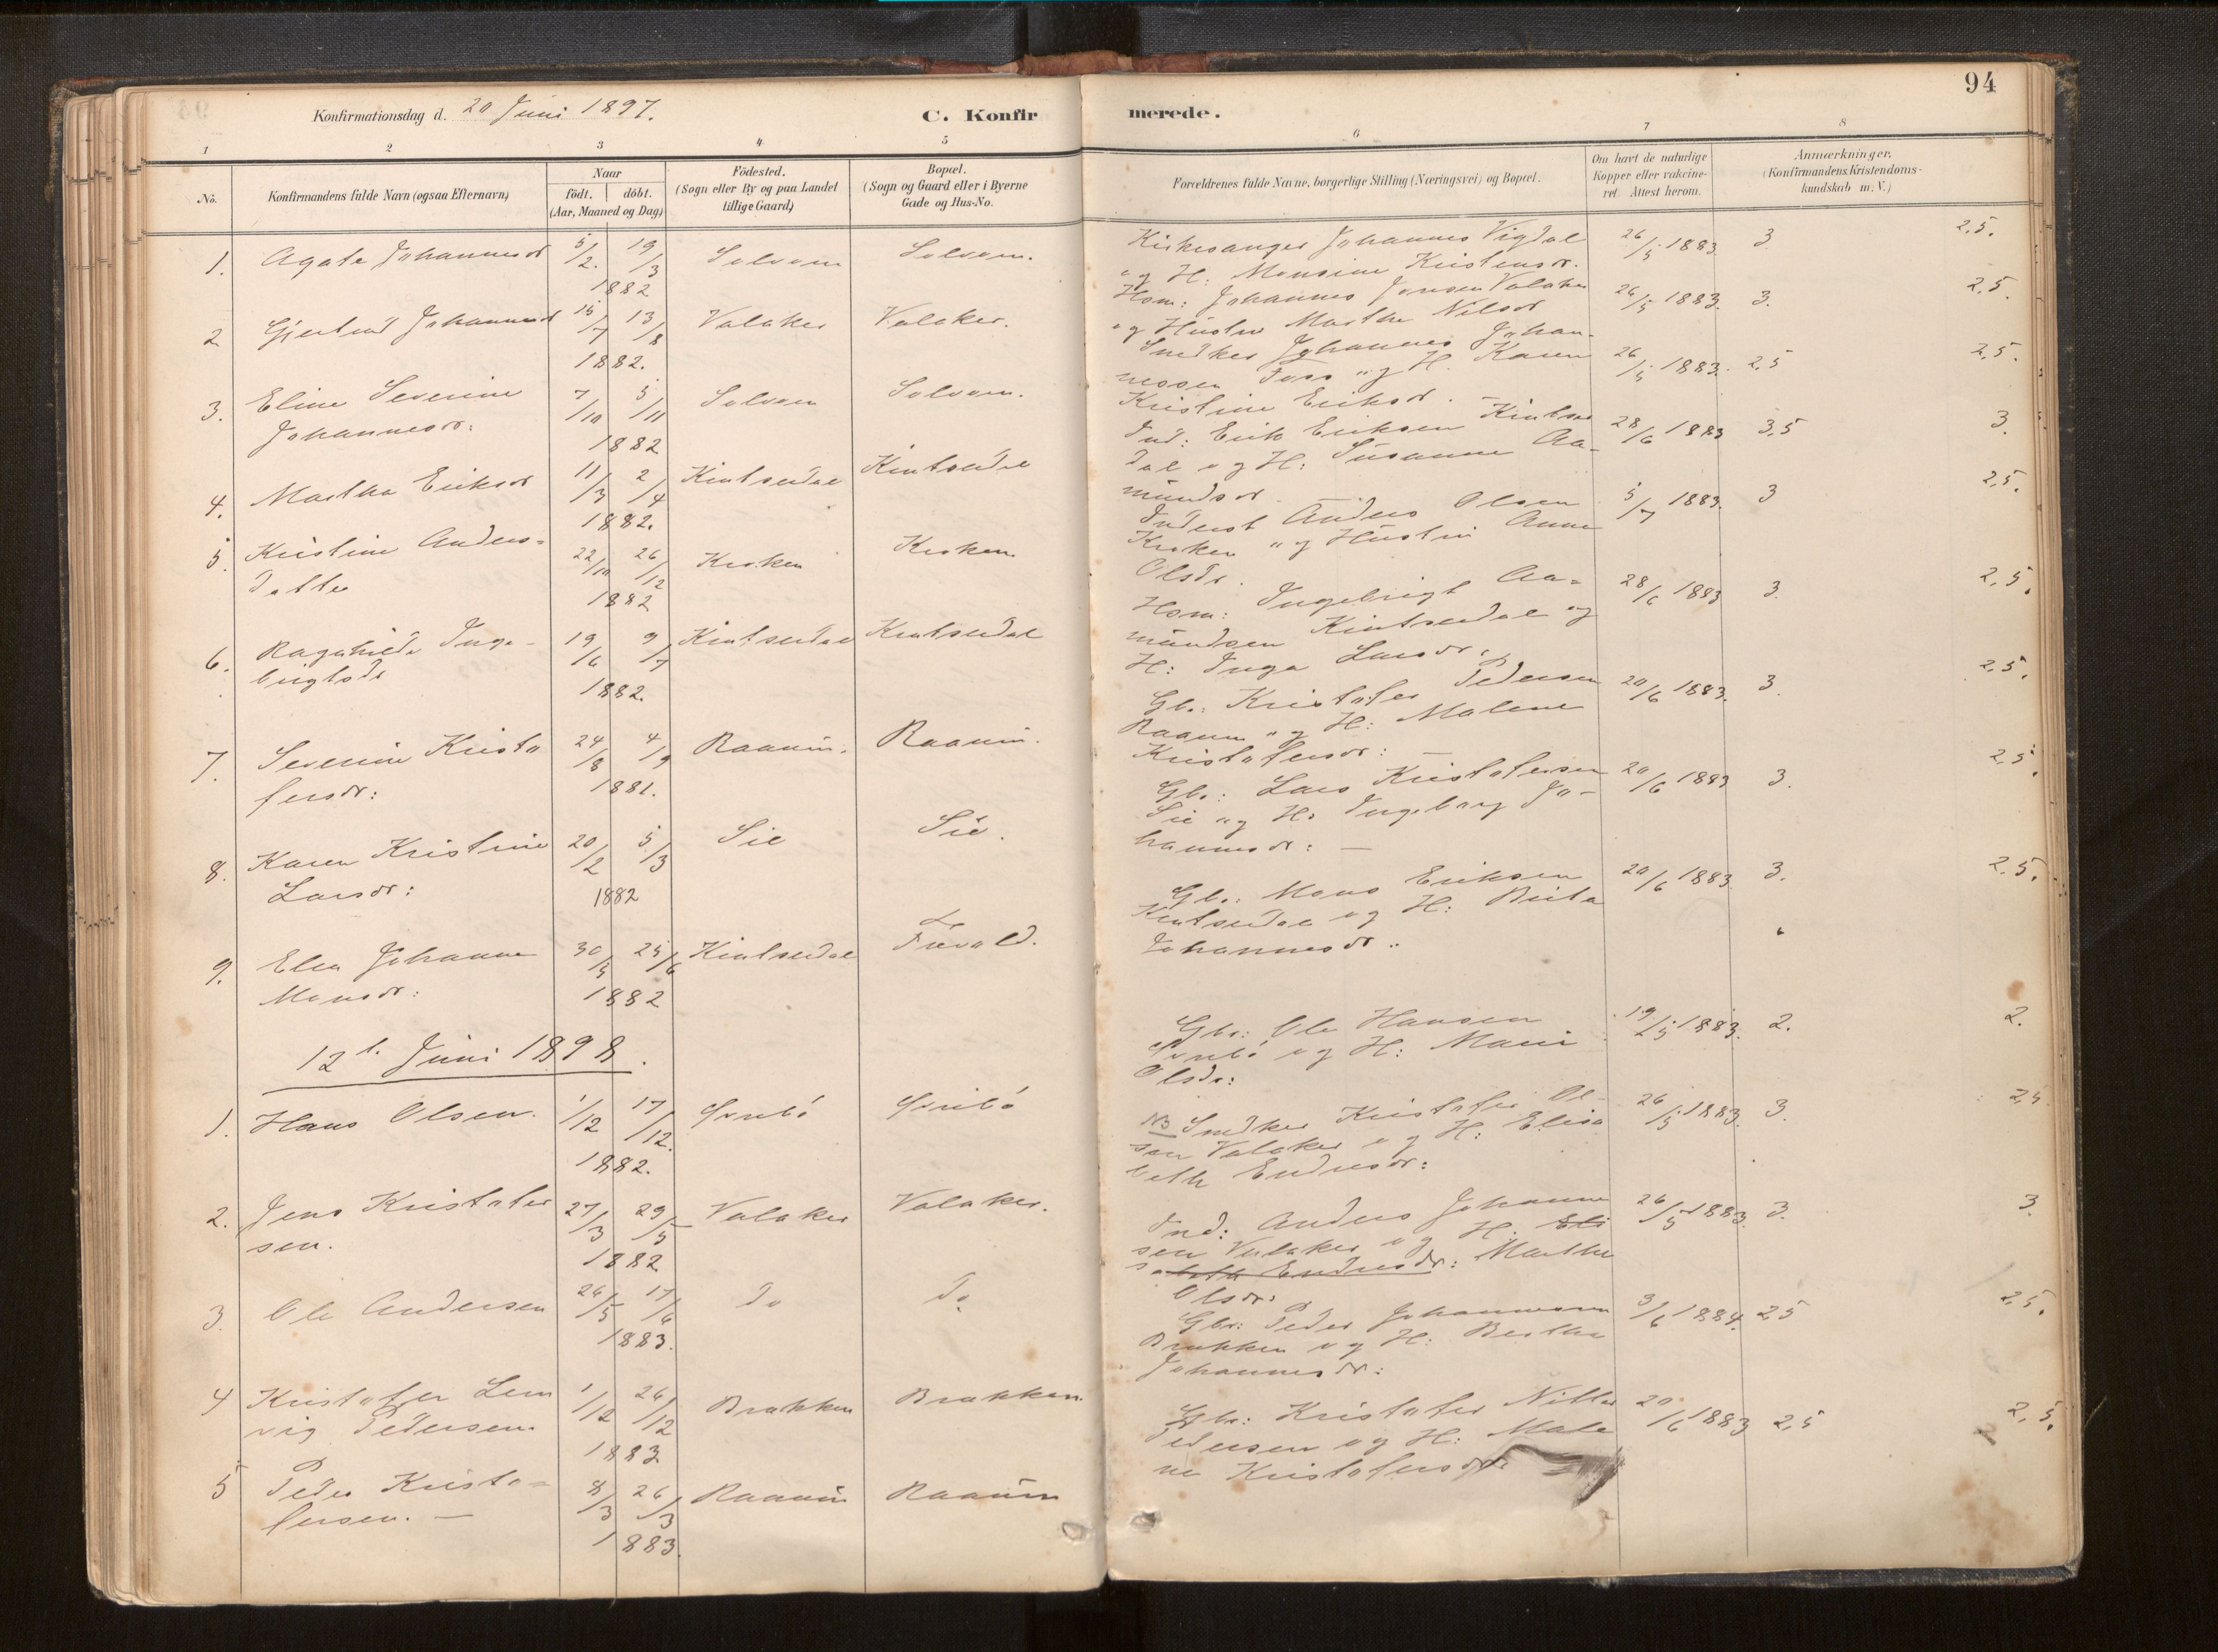 94
Konfirmationsdag d. 20 Juni 1897.
C. Konfirmerede.
1 2 3 4 5 6 7 8
No.
Konfirmandens fulde Navn (ogsaa Efternavn)
Naar
født. døbt.
(Aar, Maaned og Dag)
Födested.
(Sogn eller By og paa Landet
tillige Gaard)
Bopæl.
(Sogn og Gaard eller i Byerne
Gade og Hus-No.
Forældrenes fulde Navne, borgerlige Stilling (Næringsvei) og Bopæl.
Om havt de naturlige
Kopper eller vakcine-
ret. Attest herom.
Anmærkninger.
(Konfirmandens Kristendoms-
kundskab m. V.)
1. Agate Johannesdr 5/2 19/3 1882 Solvorn Solvorn.
Kirkesanger Johannes Vigdal
og H. Monsine Kristensdr. 26/5 1883 3. 2,5.
2 Gjertrud Johannesdr 15/7 13/8 1882. Valaker Valaker.
Hsm: Johannes Jensen Valaker
og Hustru Marthe Nilsdr 26/5 1883. 3. 2,5.
3. Eline Severine
Johannesdr: 7/10 5/11 1882 Solvorn Solvorn.
Snedker Johannes Johan-
nessen Foss og H. Karen
Kristine Eriksdr. 26/5 1883. 2,5 2,5.
4. Martha Eriksdr 11/3 2/4 1882. Kintsedal Kintsedal
Ind: Erik Eriksen Kintse
dal og H: Susanne Aa-
mundsdr. 28/6 1883 3,5 3.
5. Kristine Anders-
datter 22/10 26/12 1882 Kroken Kroken
Inderst Anders Olsen
Kroken og Hustru Anna
Olsdr. 5/7 1883. 3 2,5.
6. Ragnhilde Inge-
brigtsdr 19/6 9/7 1882. Kintsedal Kintsedal
Hsm: Ingebrigt Aa-
mundsen Kintsedal og
H: Inga Larsdr. 28/6 1883 3. 2,5.
7. Severine Kristo
fersdr: 24/8 4/9 1881. Raaum. Raaum.
Gbr.: Kristofer Pedersen
Raaum og H: Malene
Kristofersdr: 20/6 1883. 3. 2,5.
8. Karen Kristine
Larsdr: 20/2 5/3 1882 Sie Sie.
Gbr.: Lars Kristofersen
Sie og H. Ingeborg Jo-
hannesdr: 20/6 1883 3. 2,5.
9. Elen Johanne
Monsdr: 30/5 25/6 1882 Kintsedal
Gbr.: Mons Eriksen
Kintsedal og H: Brita
Johannesdr: 20/6 1883 3. 2,5.
12t. Juni 1898.
1. Hans Olsen. 1/12 17/12. 1882.
Gbr.: Ole Hansen
og H: Marie
Olsdr: 19/5 1883. 2. 2.
2. Jens Kristofer
sen. 27/3 29/5 1882 Valaker Valaker.
NB Snedker Kristofer Ol-
sen Valaker og H: Elisa
beth Endresdr: 26/5 1883. 3. 2,5
3. Ole Andersen 26/5 17/6 1883. do do
Ind: Anders Johanne
sen Valaker og H. Eli
sabeth Endresdr: Marthe
Olsdr: 26/5 1883. 3. 3.
4 Kristofer Lem
vig Pedersen 1/12 26/12 1883 Brakken Brakken.
Gbr: Peder Johannesen
Brakken og H: Bertha
Johannesdr: 3/6 1884. 25 2,5.
5 Peder Kristo-
fersen. 8/3 26/3 1883. Raaum Raaum
Gbr: Kristofer
Pedersen og H: Male
ne Kristofersdr: 20/6 1883 2,5 2,5.